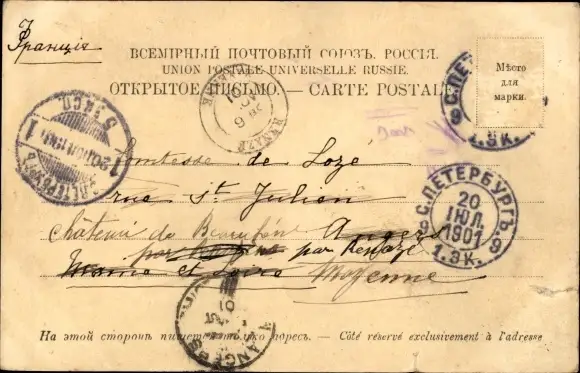 Франція
ВСЕМІРНЫЙ ПОЧТОВЫЙ СОЮЗЪ. РОССІЯ.
UNION POSTALE UNIVERSELLE RUSSIE.
ОТКРЫТОЕ ПИСЬМО. — CARTE POSTALE
Мѣсто
для
марки.
С.ПЕ
9
1.ЭК.
RENAZÉ
Comtesse de Lozé
rue St Julien
Château de Angers
par Renazé
Maine et Loire Mayenne
С.ПЕТЕРБУРГЪ
20
ІЮЛ.
1901
1.ЭК.
9 9
ANGERS
На этой сторонѣ пишется только адресъ. — Côté réservé exclusivement à l'adresse